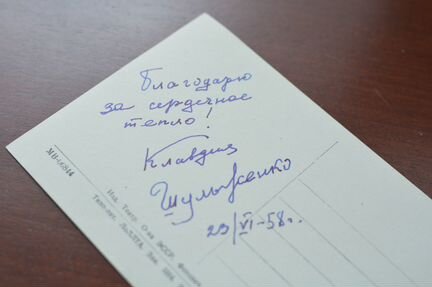 Благодарю
за сердечное
тепло!
Клавдия
Шульженко
23/VI-58г.
Изд. Театр. О-ва ЭССР.
Зак.